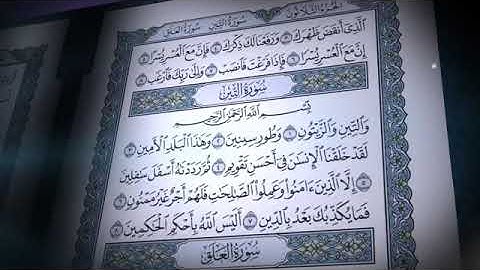 سُورَةُ العَلَق سُورَةُ التِّين الجُزءُ الثَّلَاثُونَ
الَّذِي أَنقَضَ ظَهْرَكَ ۝٣ وَرَفَعْنَا لَكَ ذِكْرَكَ ۝٤ فَإِنَّ مَعَ الْعُسْرِ يُسْرًا ۝٥
إِنَّ مَعَ الْعُسْرِ يُسْرًا ۝٦ فَإِذَا فَرَغْتَ فَانصَبْ ۝٧ وَإِلَىٰ رَبِّكَ فَارْغَب ۝٨
سُورَةُ التِّينِ
بِسْمِ اللَّهِ الرَّحْمَٰنِ الرَّحِيمِ
وَالتِّينِ وَالزَّيْتُونِ ۝١ وَطُورِ سِينِينَ ۝٢ وَهَٰذَا الْبَلَدِ الْأَمِينِ ۝٣
لَقَدْ خَلَقْنَا الْإِنسَٰنَ فِي أَحْسَنِ تَقْوِيمٍ ۝٤ ثُمَّ رَدَدْنَٰهُ أَسْفَلَ سَٰفِلِينَ
۝٥ إِلَّا الَّذِينَ ءَامَنُوا وَعَمِلُوا الصَّٰلِحَٰتِ فَلَهُمْ أَجْرٌ غَيْرُ مَمْنُونٍ ۝٦
فَمَا يُكَذِّبُكَ بَعْدُ بِالدِّينِ ۝٧ أَلَيْسَ اللَّهُ بِأَحْكَمِ الْحَٰكِمِينَ ۝٨
سُورَةُ الْعَلَقِ